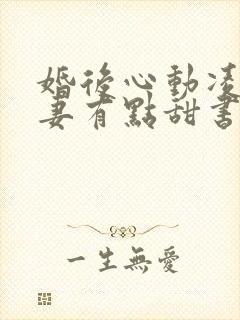 婚後心動凌
妻有點甜書
一生無愛